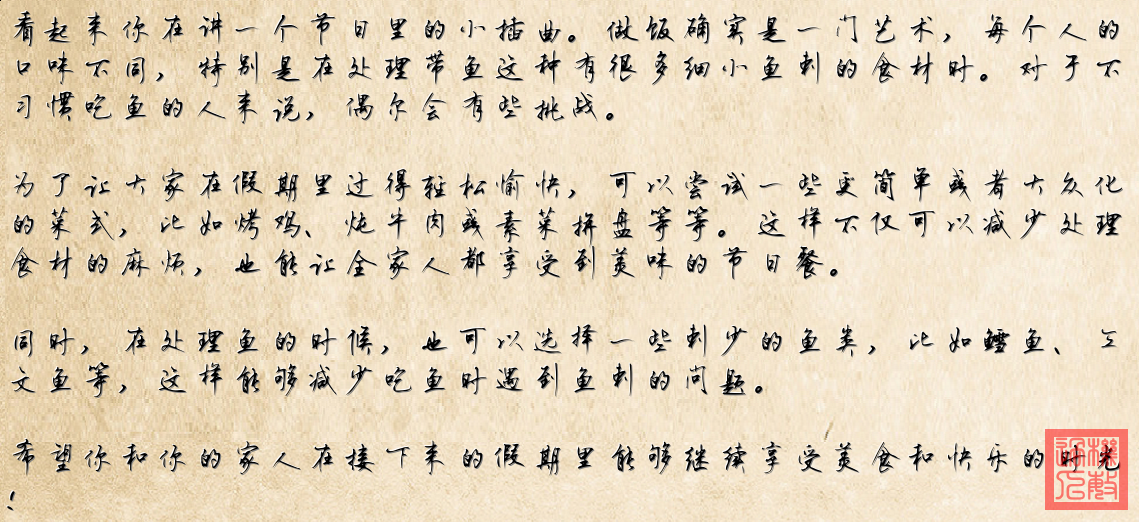 看起来你在讲一个节日里的小插曲。做饭确实是一门艺术，每个人的
口味不同，特别是在处理带鱼这种有很多细小鱼刺的食材时。对于不
习惯吃鱼的人来说，偶尔会有些挑战。
为了让大家在假期里过得轻松愉快，可以尝试一些更简单或者大众化
的菜式，比如烤鸡、炖牛肉或素菜拼盘等等。这样不仅可以减少处理
食材的麻烦，也能让全家人都享受到美味的节日餐。
同时，在处理鱼的时候，也可以选择一些刺少的鱼类，比如鳕鱼、三
文鱼等，这样能够减少吃鱼时遇到鱼刺的问题。
希望你和你的家人在接下来的假期里能够继续享受美食和快乐的时光
！